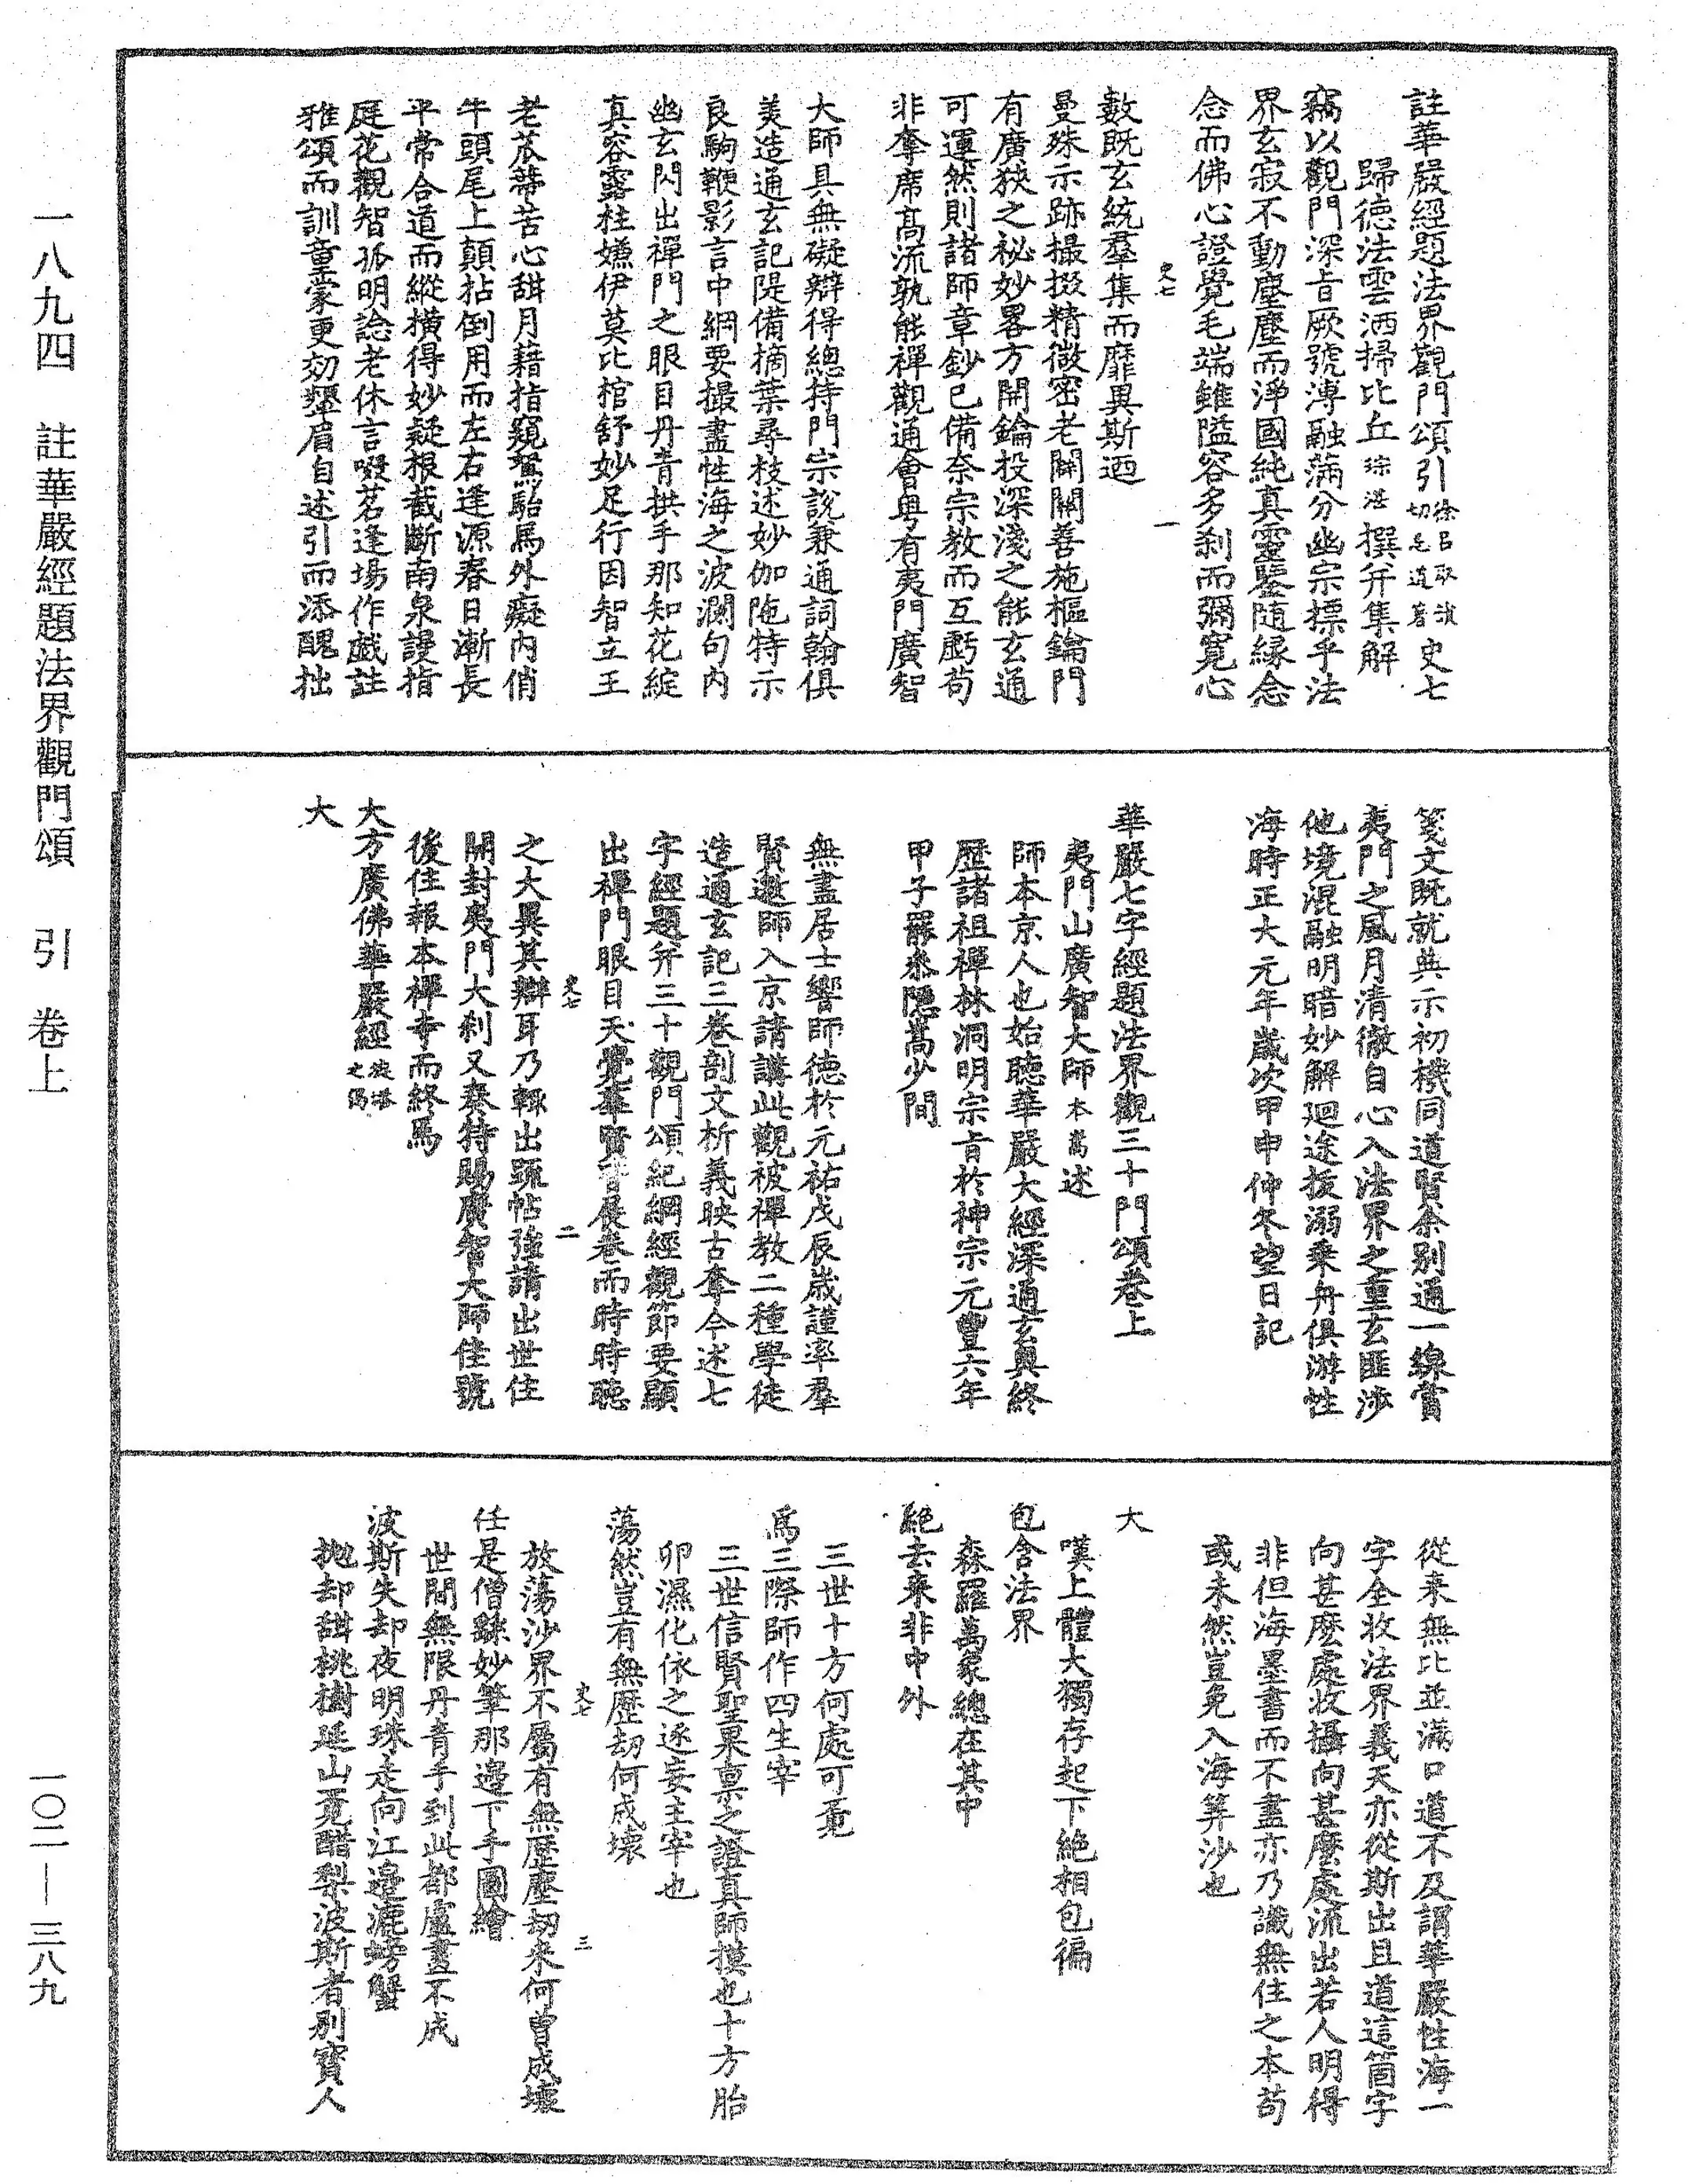 註華嚴經題法界觀門頌引 史七
歸德法雲洒掃比丘琮湛撰并集解
竊以觀門深旨厥號溥融滿分幽宗標乎法
界玄寂不動塵塵而淨國純真靈鑒隨緣念
念而佛心證覺毛端雖隘容多剎而彌寬心
數既玄統羣集而靡異斯迺
史七 一
曼殊示跡撮掇精微密老開關善施樞鑰門
有廣狹之祕妙畧方開鑰投深淺之能玄通
可運然則諸師章鈔已備奈宗教而互虧苟
非奪席高流孰能禪觀通會粵有夷門廣智
大師具無礙辯得總持門宗說兼通詞翰俱
美造通玄記隄備摘葉尋枝述妙伽陁特示
良駒鞭影言中綱要撮盡性海之波瀾句内
幽玄閃出禪門之眼目丹青拱手那知花綻
真容露柱嫌伊莫比棺舒妙足行因智立王
老苽蒂苦心甜月藉指窺駑駘馬外癡内俏
牛頭尾上顛拈倒用而左右逢源春日漸長
平常合道而縱橫得妙疑根截斷南泉謾指
庭花觀智孤明諗老休言啜茗逢場作戲註
雅頌而訓童蒙更効顰眉自述引而添醜拙
箋文既就典示初機同道賢余别通一線賞
夷門之風月清徹自心入法界之重玄匪涉
他境混融明暗妙解迴途援溺乗舟俱游性
海時正大元年歲次甲申仲冬望日記
華嚴七字經題法界觀三十門頌卷上
夷門山廣智大師本嵩述
師本京人也始聴華嚴大經深通玄奥終
歷諸祖禪林洞明宗旨於神宗元豐六年
甲子罷叅隱嵩少間
無盡居士響師德於元祐戊辰歲謹率羣
賢邀師入京請講此觀被禪教二種學徒
造通玄記三卷剖文析義映古奪今述七
字經題并三十觀門頌紀綱經觀節要顯
出禪門眼目天覺羣賢展卷而時時聴
史七 二
之大異其辯耳乃輙出䟽帖強請出世住
開封夷門大剎又奏特賜廣智大師佳號
後住報本禪寺而終焉
大方廣佛華嚴經
大
從来無比並滿口道不及謂華嚴性海一
字全收法界義天亦從斯出且道這箇字
向甚麽處收攝向甚麽處流出若人明得
非但海墨書而不盡亦乃識無住之本苟
或未然豈免入海筭沙也
大
嘆上體大獨存起下絶相包徧
包含法界
森羅萬象總在其中
絶去来非中外
三世十方何處可覔
爲三際師作四生宰
三世信賢聖果禀之證真師摸也十方胎
卵濕化依之逐妄主宰也
蕩然豈有無歷劫何成壊
史七 三
放蕩沙界不屬有無歷塵劫来何曽成壊
任是僧繇妙筆那邉下手圖繪
世間無限丹青手到此都盧畫不成
波斯失却夜明珠走向江邉漉螃蟹
抛却甜桃樹延山覔醋梨波斯者别寳人
一八九四 註華嚴經題法界觀門頌 引 卷上
一〇二—三八九